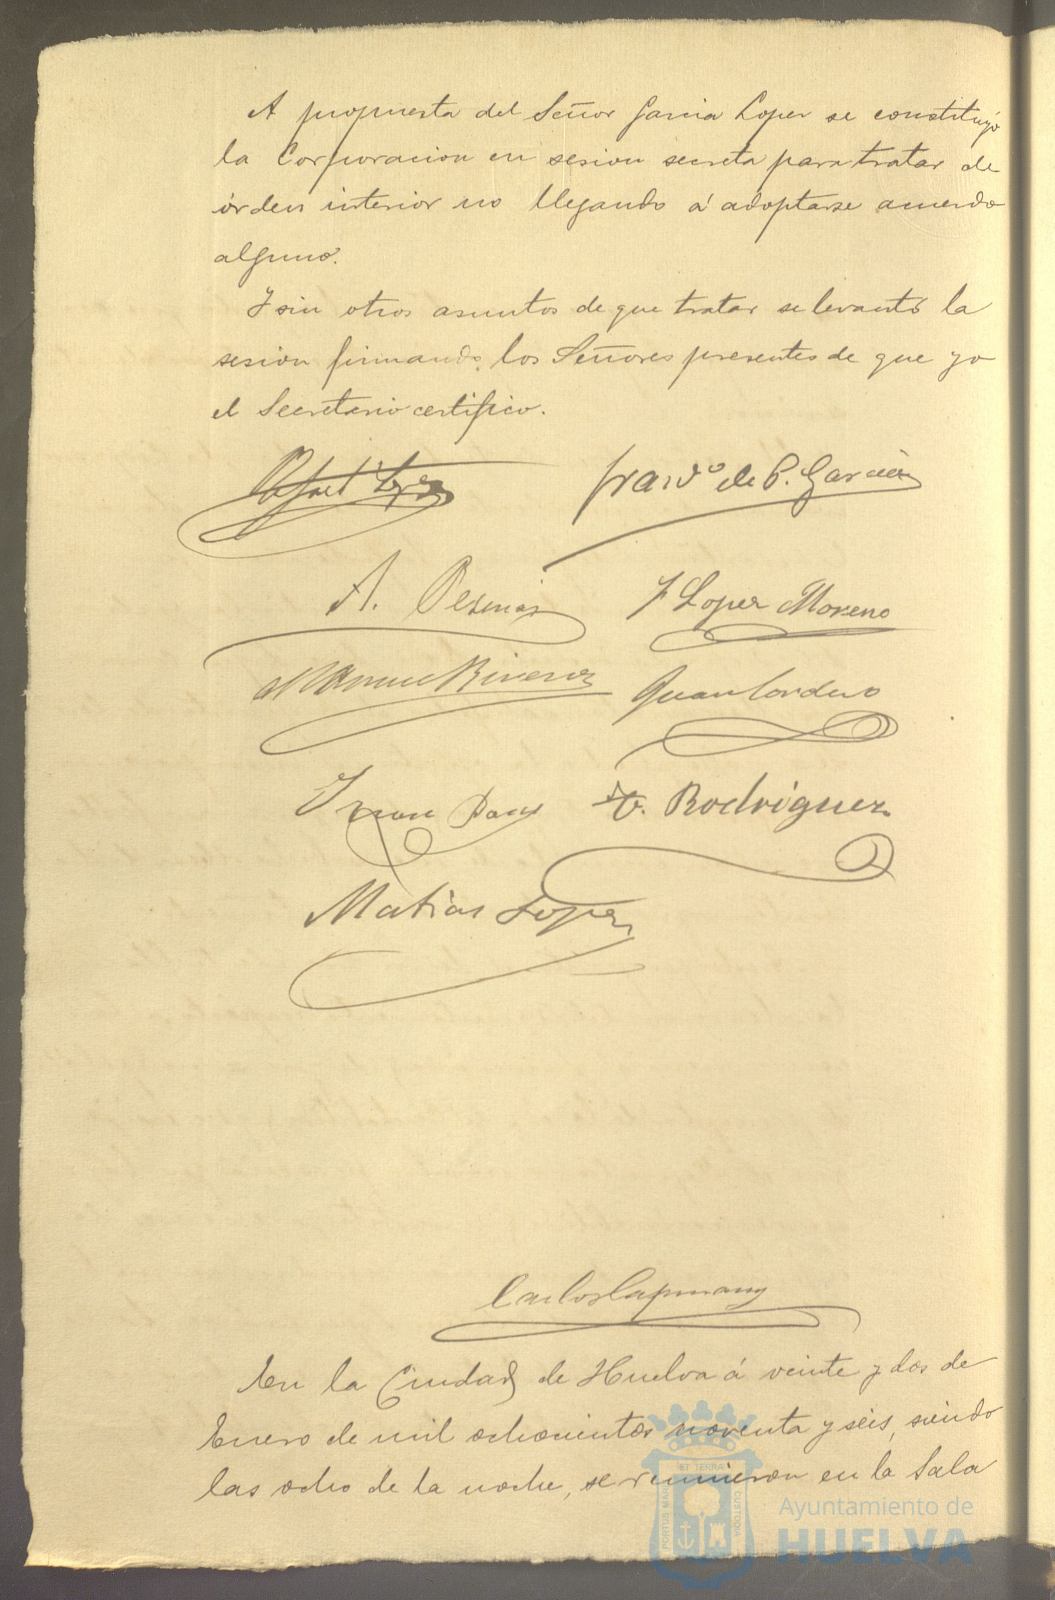 A propuesta del Señor Garcia Lopez se constituyó
la Corporacion en sesion secreta para tratar de
órden interior no llegando á adoptarse acuerdo
alguno.
Y sin otros asuntos de que tratar se levantó la
sesion firmando los Señores presentes de que yo
el Secretario certifico.
Rafael Lopez
Franco de P. Garcia
A.
J Lopez Moreno
Manuel Rivero
Juan Cordero
Juan
Rodriguez
Matias Lopez
Carlos Capmany
En la Ciudad de Huelva á veinte y dos de
Enero de mil ochocientos noventa y seis, siendo
las ocho de la noche, se reunieron en la Sala
ET TERRA
PORTUS MARIS
CUSTODIA
Ayuntamiento de
HUELVA